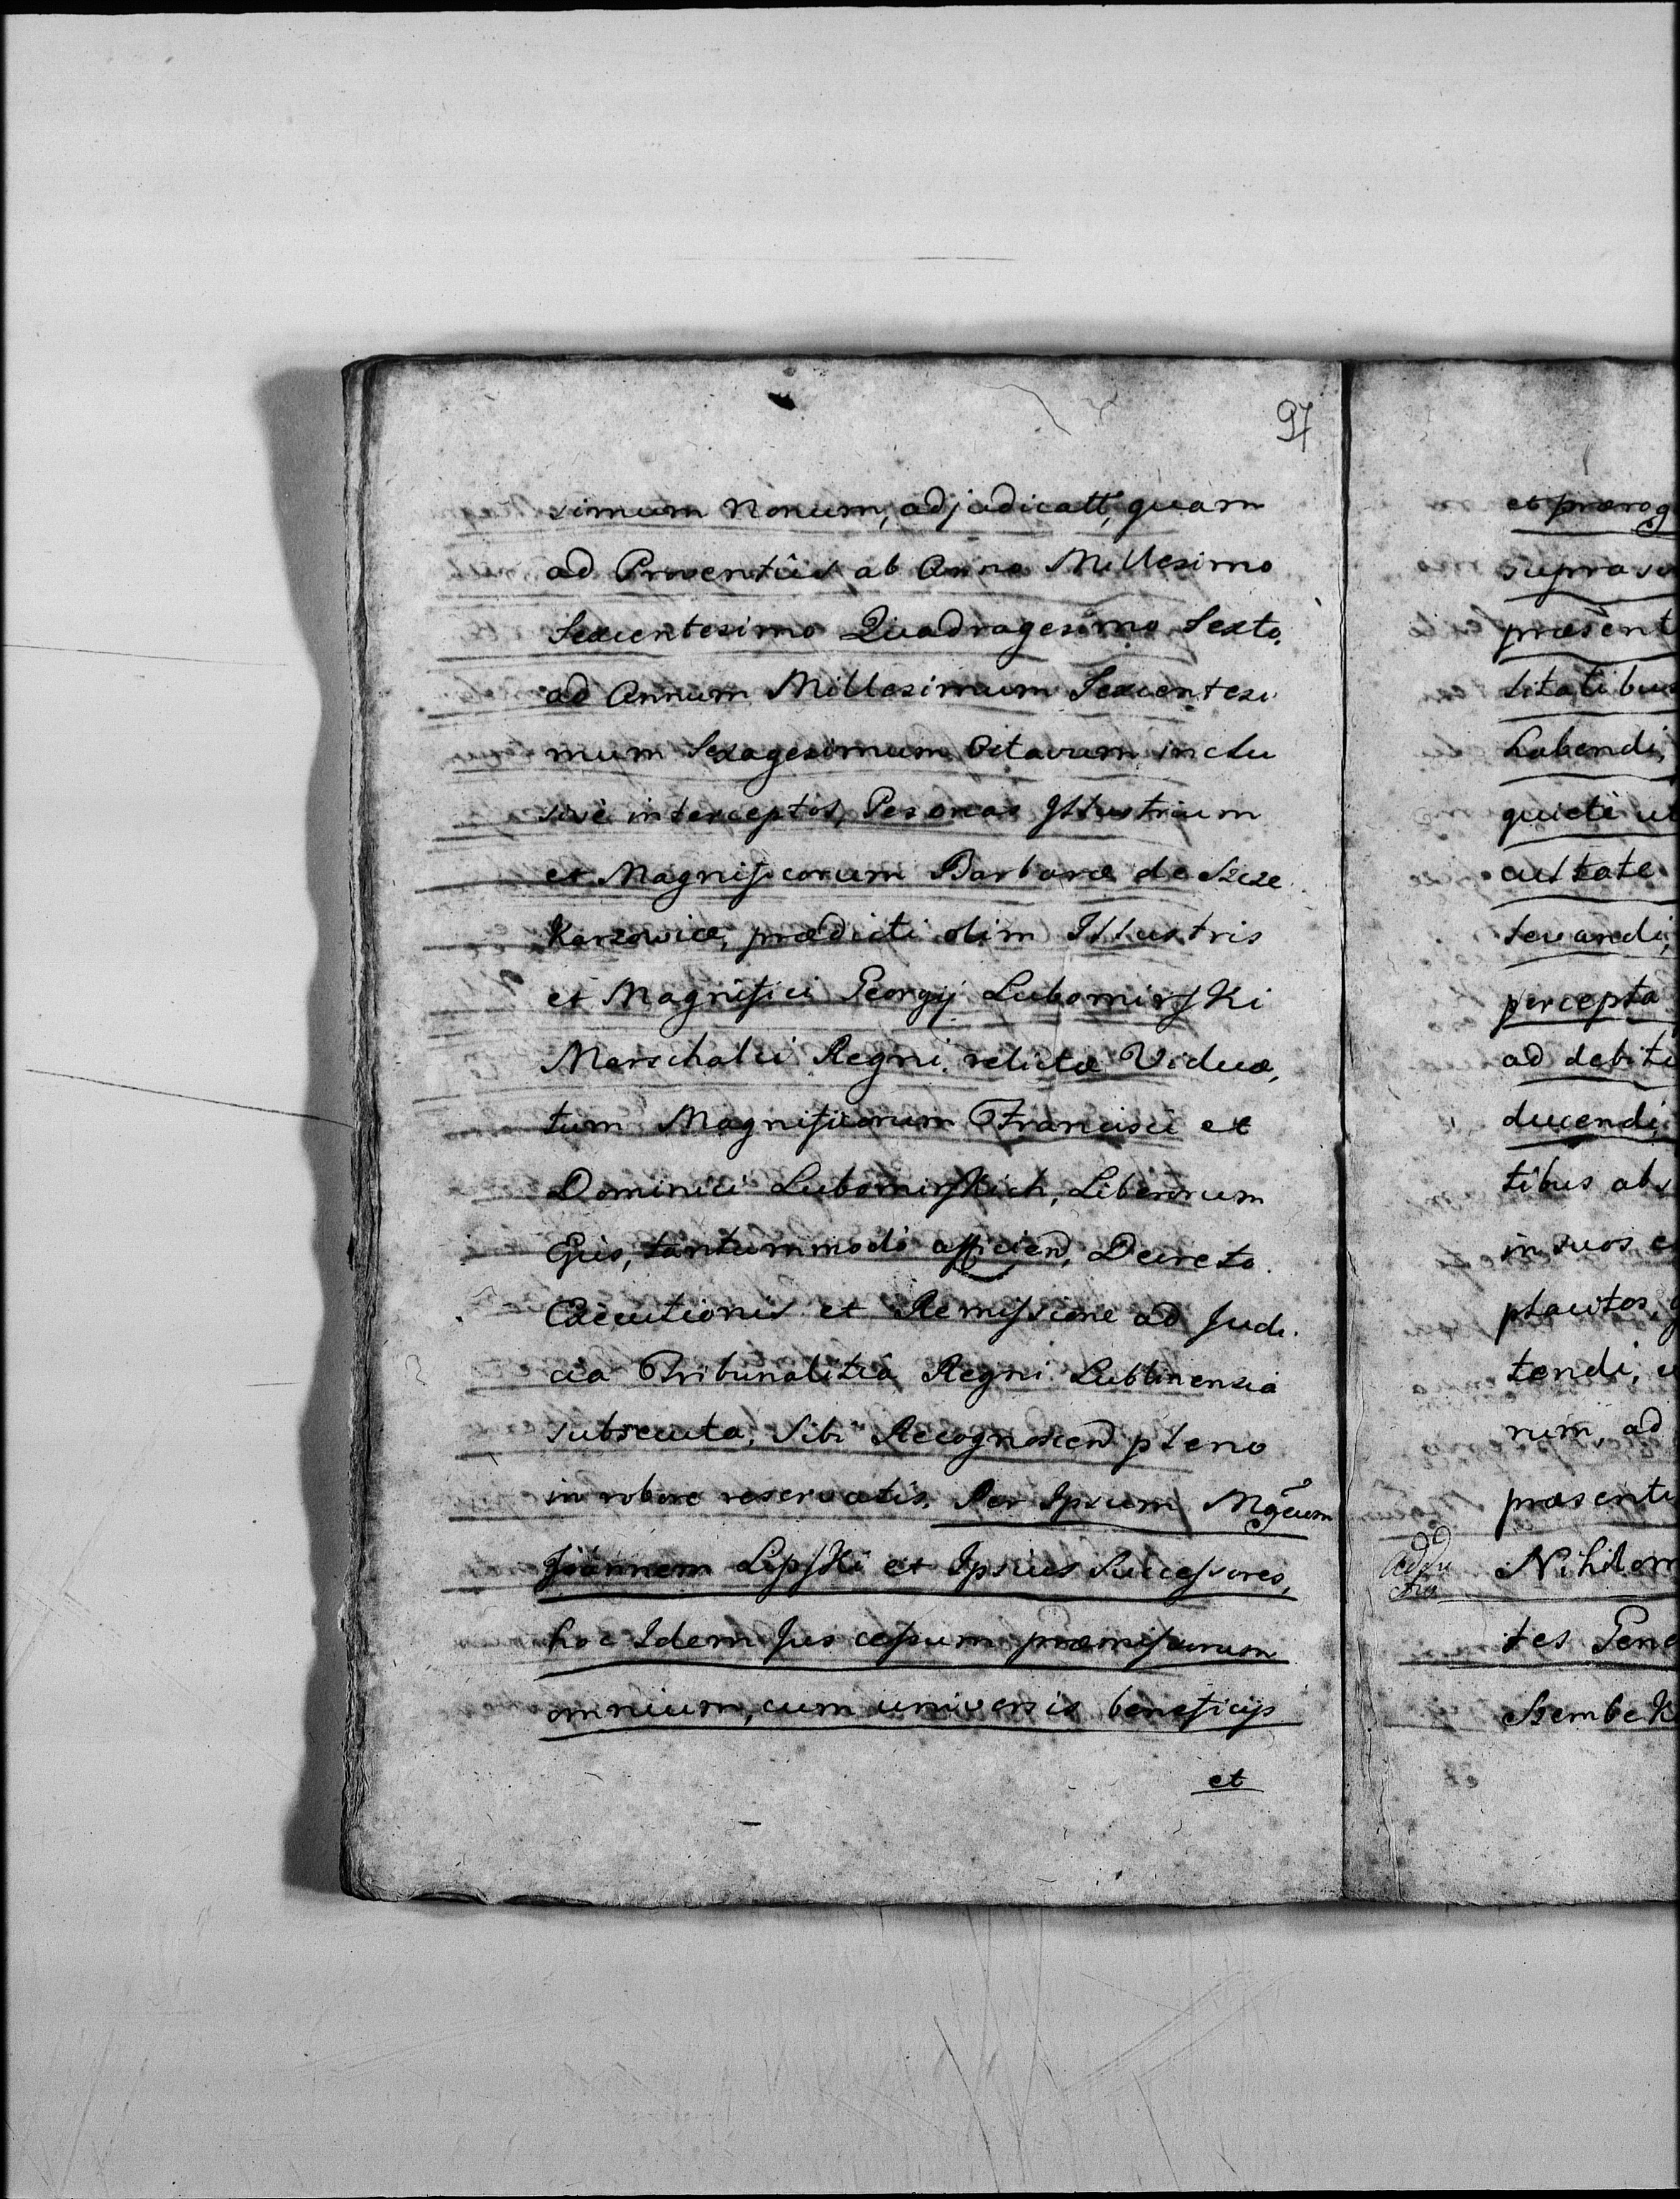 97
simum Nonum, adjudicatt, quam
ad Proventûs ab Anno Millesimo
Sexcentesimo Quadragesimo Sexto,
ad Annum Millesimum Sexcentesi
mum Sexagesimum Octavum inclu
sivè interceptos, Pesonas Illustrium
et Magnificorum Barbaræ de Szcze
Karzowice, prædicti olim Illustris
et Magnifici Georgij Lubomirski
Marschalci Regni relictæ Viduæ,
tum Magnificorum Francisci et
Dominici Lubomirskich, Liberorum
Ejus, tantummodò afficien, Decreto
Executionis et Remissione ad Judi
cia Tribunalitia Regni Lublinensia
subsecuta, Sibi Recognoscen pleno
in robore reservatis. Per Ipsum Mgcum
Joannem Lipski et Ipsius Successores,
hoc Idem Jus cessum præmissorum
omnium, cum universis beneficijs
et
et prærog
supra
præsent
litatibus
habendi,
quietè
cultate
levandi,
percepta
ad debit
ducendi,
tibus abs
in suos e
placitos,
tendi,
rum, ad
præsenti
Nihilom
tes Gene
Szembek